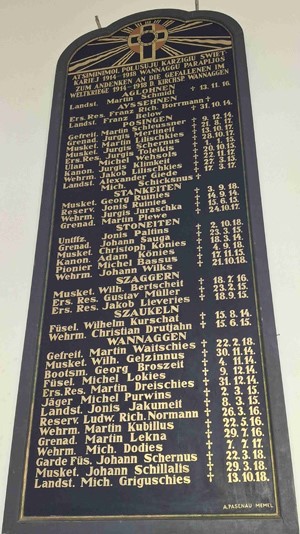 ATSIMINIMOI POLUSUJU KARZIGIU SWIET
KARIEJ 1914-1918 WANNAGGU PARAPIJOS
ZUM ANDENKEN AN DIE GEFALLENEN IM
WELTKRIEGE 1914-1918 D. KIRCHSP. WANNAGGEN
AGLOHNEN
Landst. Martin Schmidt † 13. 11. 16.
AYSSEHNEN
Ers. Res. Franz Rich. Horrmann † 31. 10. 14.
Landst. Franz Below
POSINGEN
Gefreit. Martin Schleusner † 9. 12. 14.
Grenad. Jurgis † 21. 8. 17.
Musket. Michel † 13. 10. 17.
Musket. Martin † 28. 10. 17.
Musket. Jurgis
Ulan Michel Wehsols
Kanon. Jurgis Klimkeit
Wehrm. Jakob Lilischkies
Landst. Alexander Giede † 17. 3. 17.
Mich. Schicksnus †
STANKEITEN
Musket. Georg † 3. 9. 18.
Reserv. Jonis † 14. 9. 14.
Wehrm. Jurgis Juraschka † 15. 6. 15.
Grenad. Martin Plewe † 24. 10. 17.
STONEITEN
Untffz. Jonis † 2. 10. 18.
Grenad. Johann Sauga † 23. 3. 15.
Musket. Christoph Konies † 18. 3. 14.
Kanon. Adam Konies † 4. 9. 18.
Pionier Michel Bassus † 17. 11. 15.
Wehrm. Johann Wilks † 21. 10. 15.
SZAGGERN
Musket. Wilh. Bertscheit † 18. 7. 16.
Ers. Res. Gustav Müller † 23. 2. 15.
Ers. Res. Jakob Lieveries † 18. 9. 15.
SZAUKELN
Füsel. Wilhelm Kurschat † 15. 8. 14.
Wehrm. Christian Drutjahn † 15. 6. 15.
WANNAGGEN
Gefreit. Martin Waitschies † 22. 2. 18.
Musket. Wilh. Gelzinnus † 30. 11. 14.
Bootsm. Georg Broszeit † 4. 11. 14.
Füsel. Michel Lokies † 9. 12. 14.
Ers. Res. Martin Dreischies † 31. 12. 14.
Jäger Michel Purwins † 2. 3. 15.
Landst. Jonis Jakumeit † 8. 3. 15.
Reserv. Ludw. Rich. Normann † 26. 3. 16.
Wehrm. Martin Kubillus † 22. 5. 16.
Grenad. Martin Lekna † 29. 7. 16.
Wehrm. Mich. Dodies † 7. 7. 17.
Garde Füs. Johann Schernus † 22. 3. 18.
Musket. Johann Schillalis † 29. 3. 18.
Landst. Mich. Griguschies † 13. 10. 18.
A. PASCHAU MEMEL